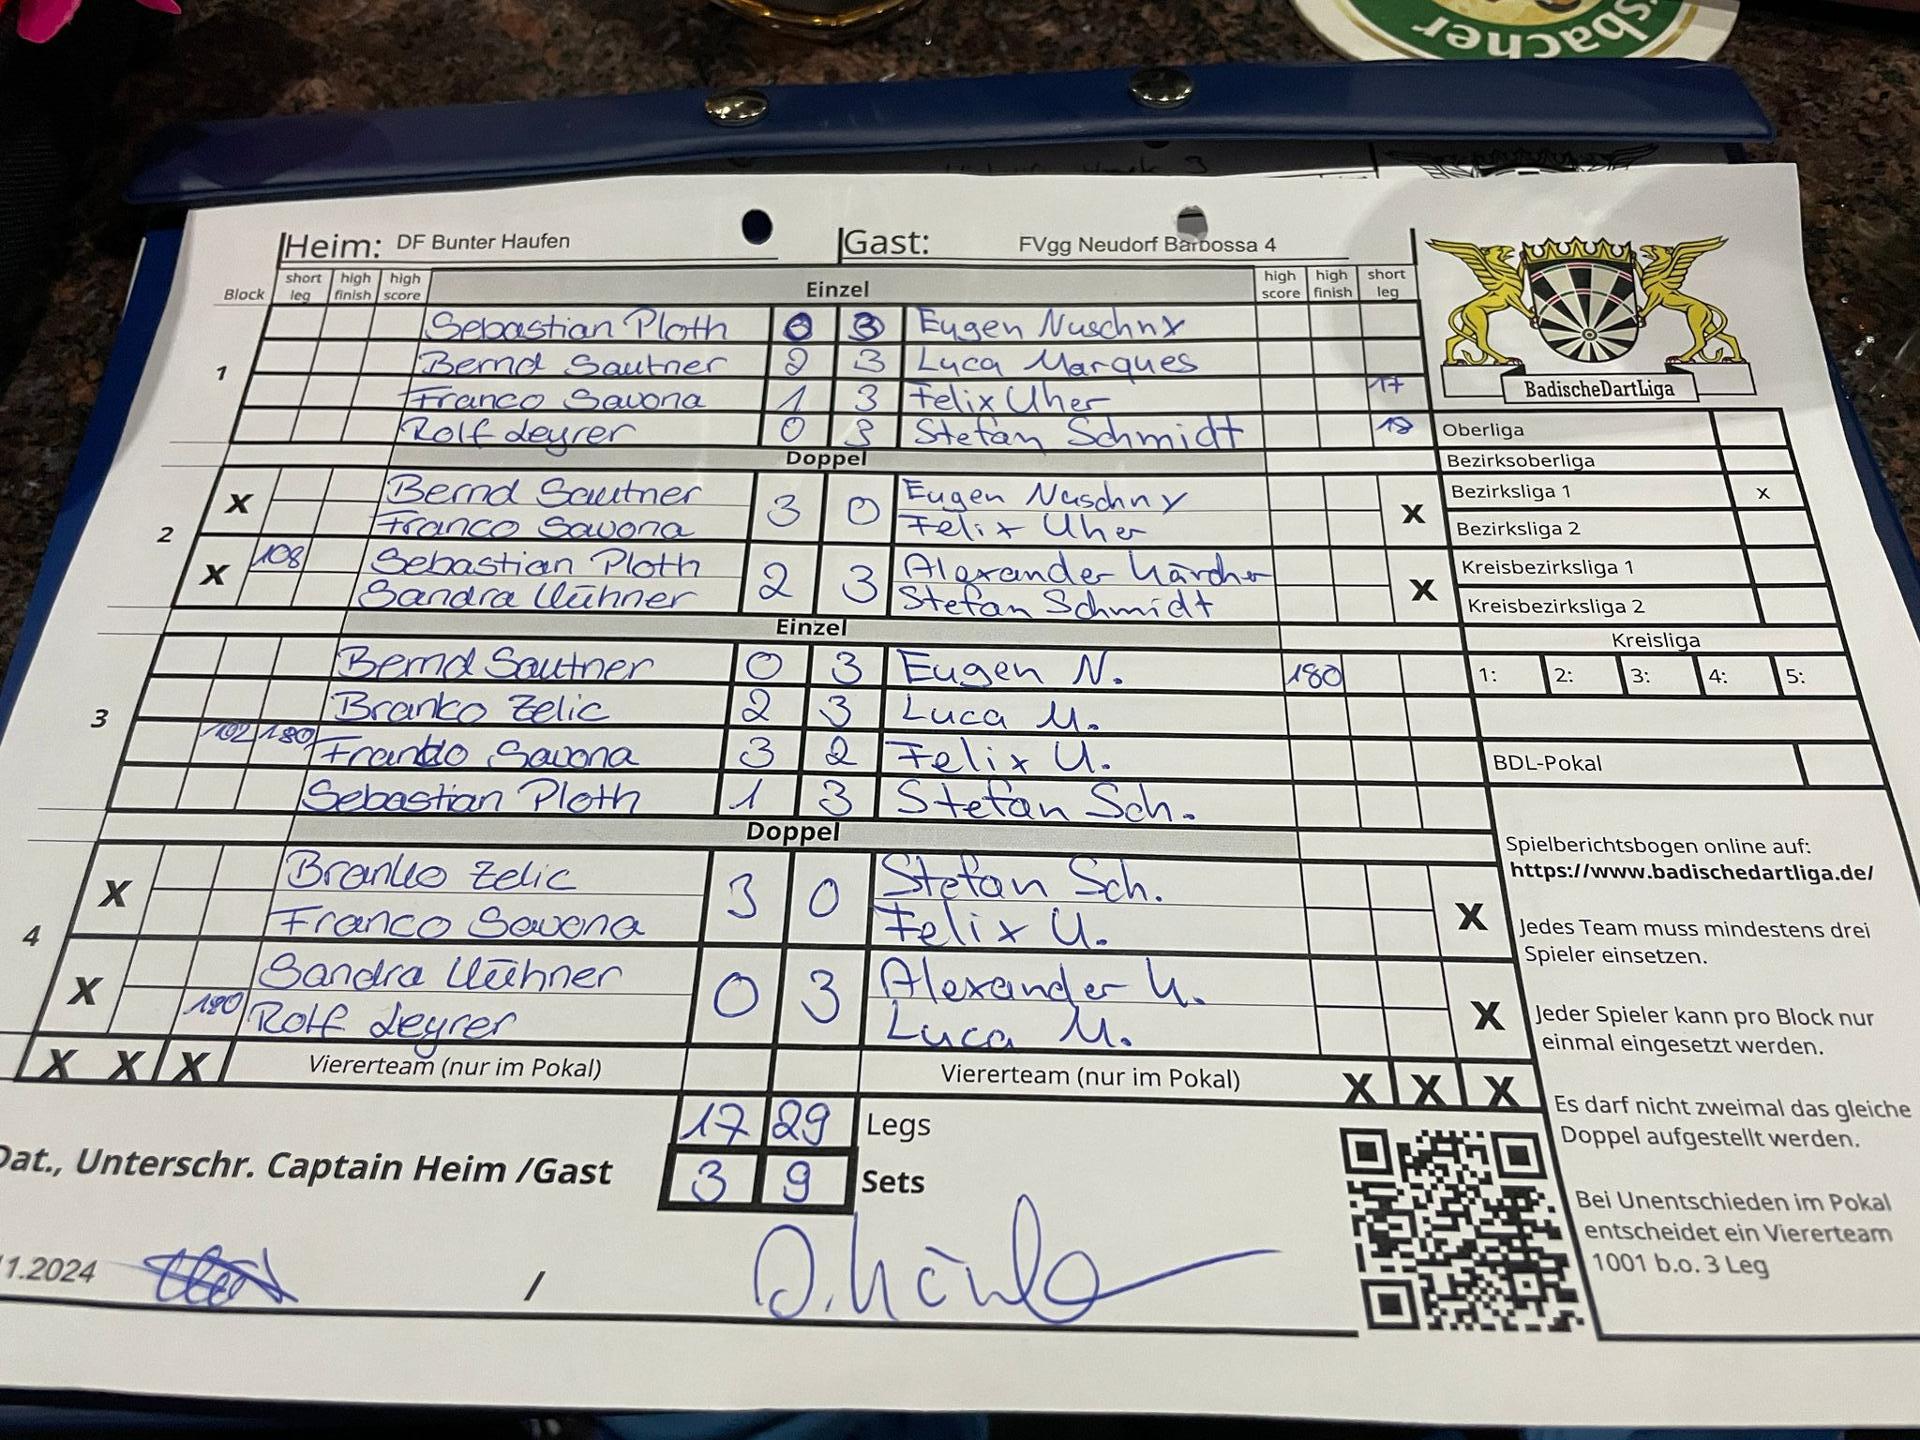 sbacher
Heim: DF Bunter Haufen Gast: FVgg Neudorf Barbossa 4
Block short leg high finish high score Einzel high score high finish short leg
1
Sebastian Ploth 0 3 Eugen Nuschny
Bernd Sautner 2 3 Luca Marques
Franco Savona 1 3 Felix Uher 17
Rolf Leyrer 0 3 Stefan Schmidt 18
Doppel
2
X Bernd Sautner 3 0 Eugen Nuschny X
Franco Savona Felix Uher
X 108 Sebastian Ploth 2 3 Alexander Kärcher X
Sandra Kühner Stefan Schmidt
Einzel
3
Bernd Sautner 0 3 Eugen N. 180
Branko Zelic 2 3 Luca M.
102 180 Franko Savona 3 2 Felix U.
Sebastian Ploth 1 3 Stefan Sch.
Doppel
4
X Branko Zelic 3 0 Stefan Sch. X
Franco Savona Felix U.
X Sandra Kühner 0 3 Alexander K. X
180 Rolf Leyrer Luca M.
X X X Vierterteam (nur im Pokal) Vierterteam (nur im Pokal) X X X
17 29 Legs
3 9 Sets
Dat., Unterschr. Captain Heim /Gast
1.2024 /
BadischeDartLiga
Oberliga
Bezirksoberliga
Bezirksliga 1 x
Bezirksliga 2
Kreisbezirksliga 1
Kreisbezirksliga 2
Kreisliga
1: 2: 3: 4: 5:
BDL-Pokal
Spielberichtsbogen online auf:
https://www.badischedartliga.de/
Jedes Team muss mindestens drei
Spieler einsetzen.
Jeder Spieler kann pro Block nur
einmal eingesetzt werden.
Es darf nicht zweimal das gleiche
Doppel aufgestellt werden.
Bei Unentschieden im Pokal
entscheidet ein Viererteam
1001 b.o. 3 Leg